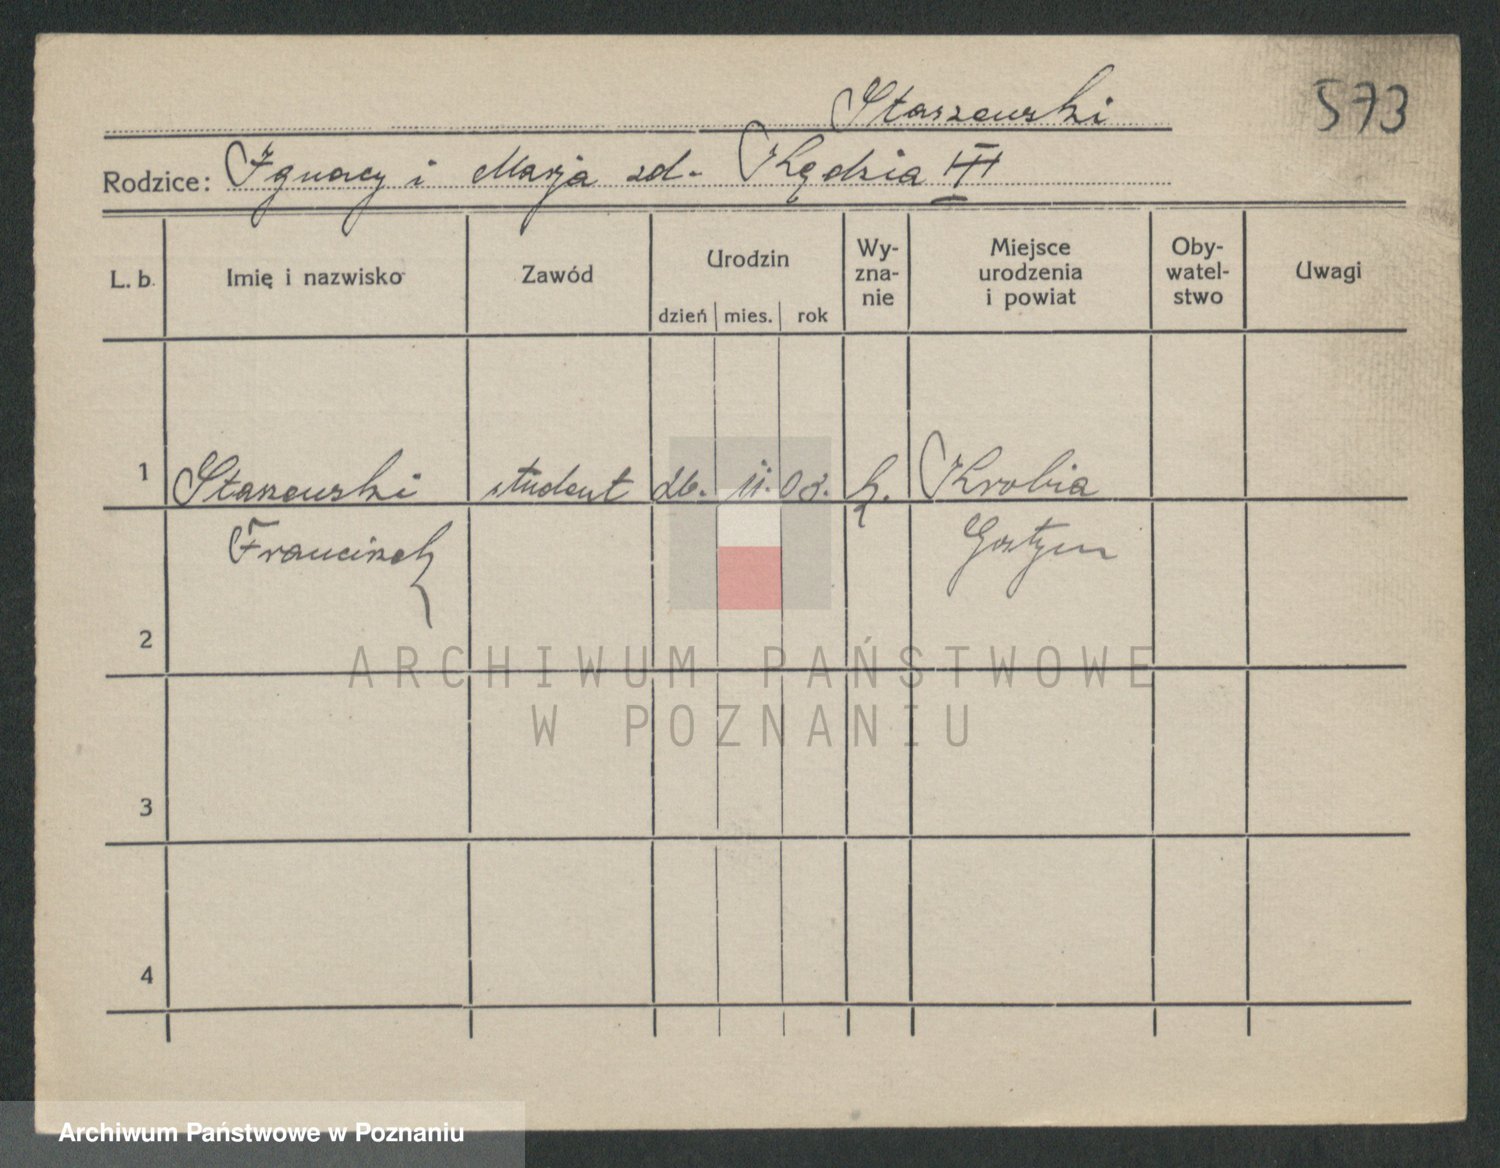 Staszewski
573
Rodzice: Ignacy i Marja zd. Kędzia III
L. b.
Imię i nazwisko
Zawód
Urodzin
dzień mies. rok
Wy-
zna-
nie
Miejsce
urodzenia
i powiat
Oby-
watel-
stwo
Uwagi
1 Staszewski student 26. 11. 08. k. Krobia
Franciszek Gostyn
2
3
4
ARCHIWUM PAŃSTWOWE
W POZNANIU
Archiwum Państwowe w Poznaniu